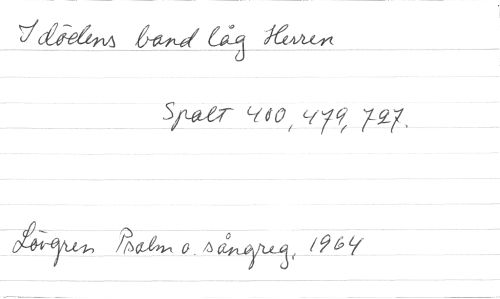 I dödens band låg Herren
Spalt 400, 479, 727.
Lövgren Psalm o. sångreg. 1964